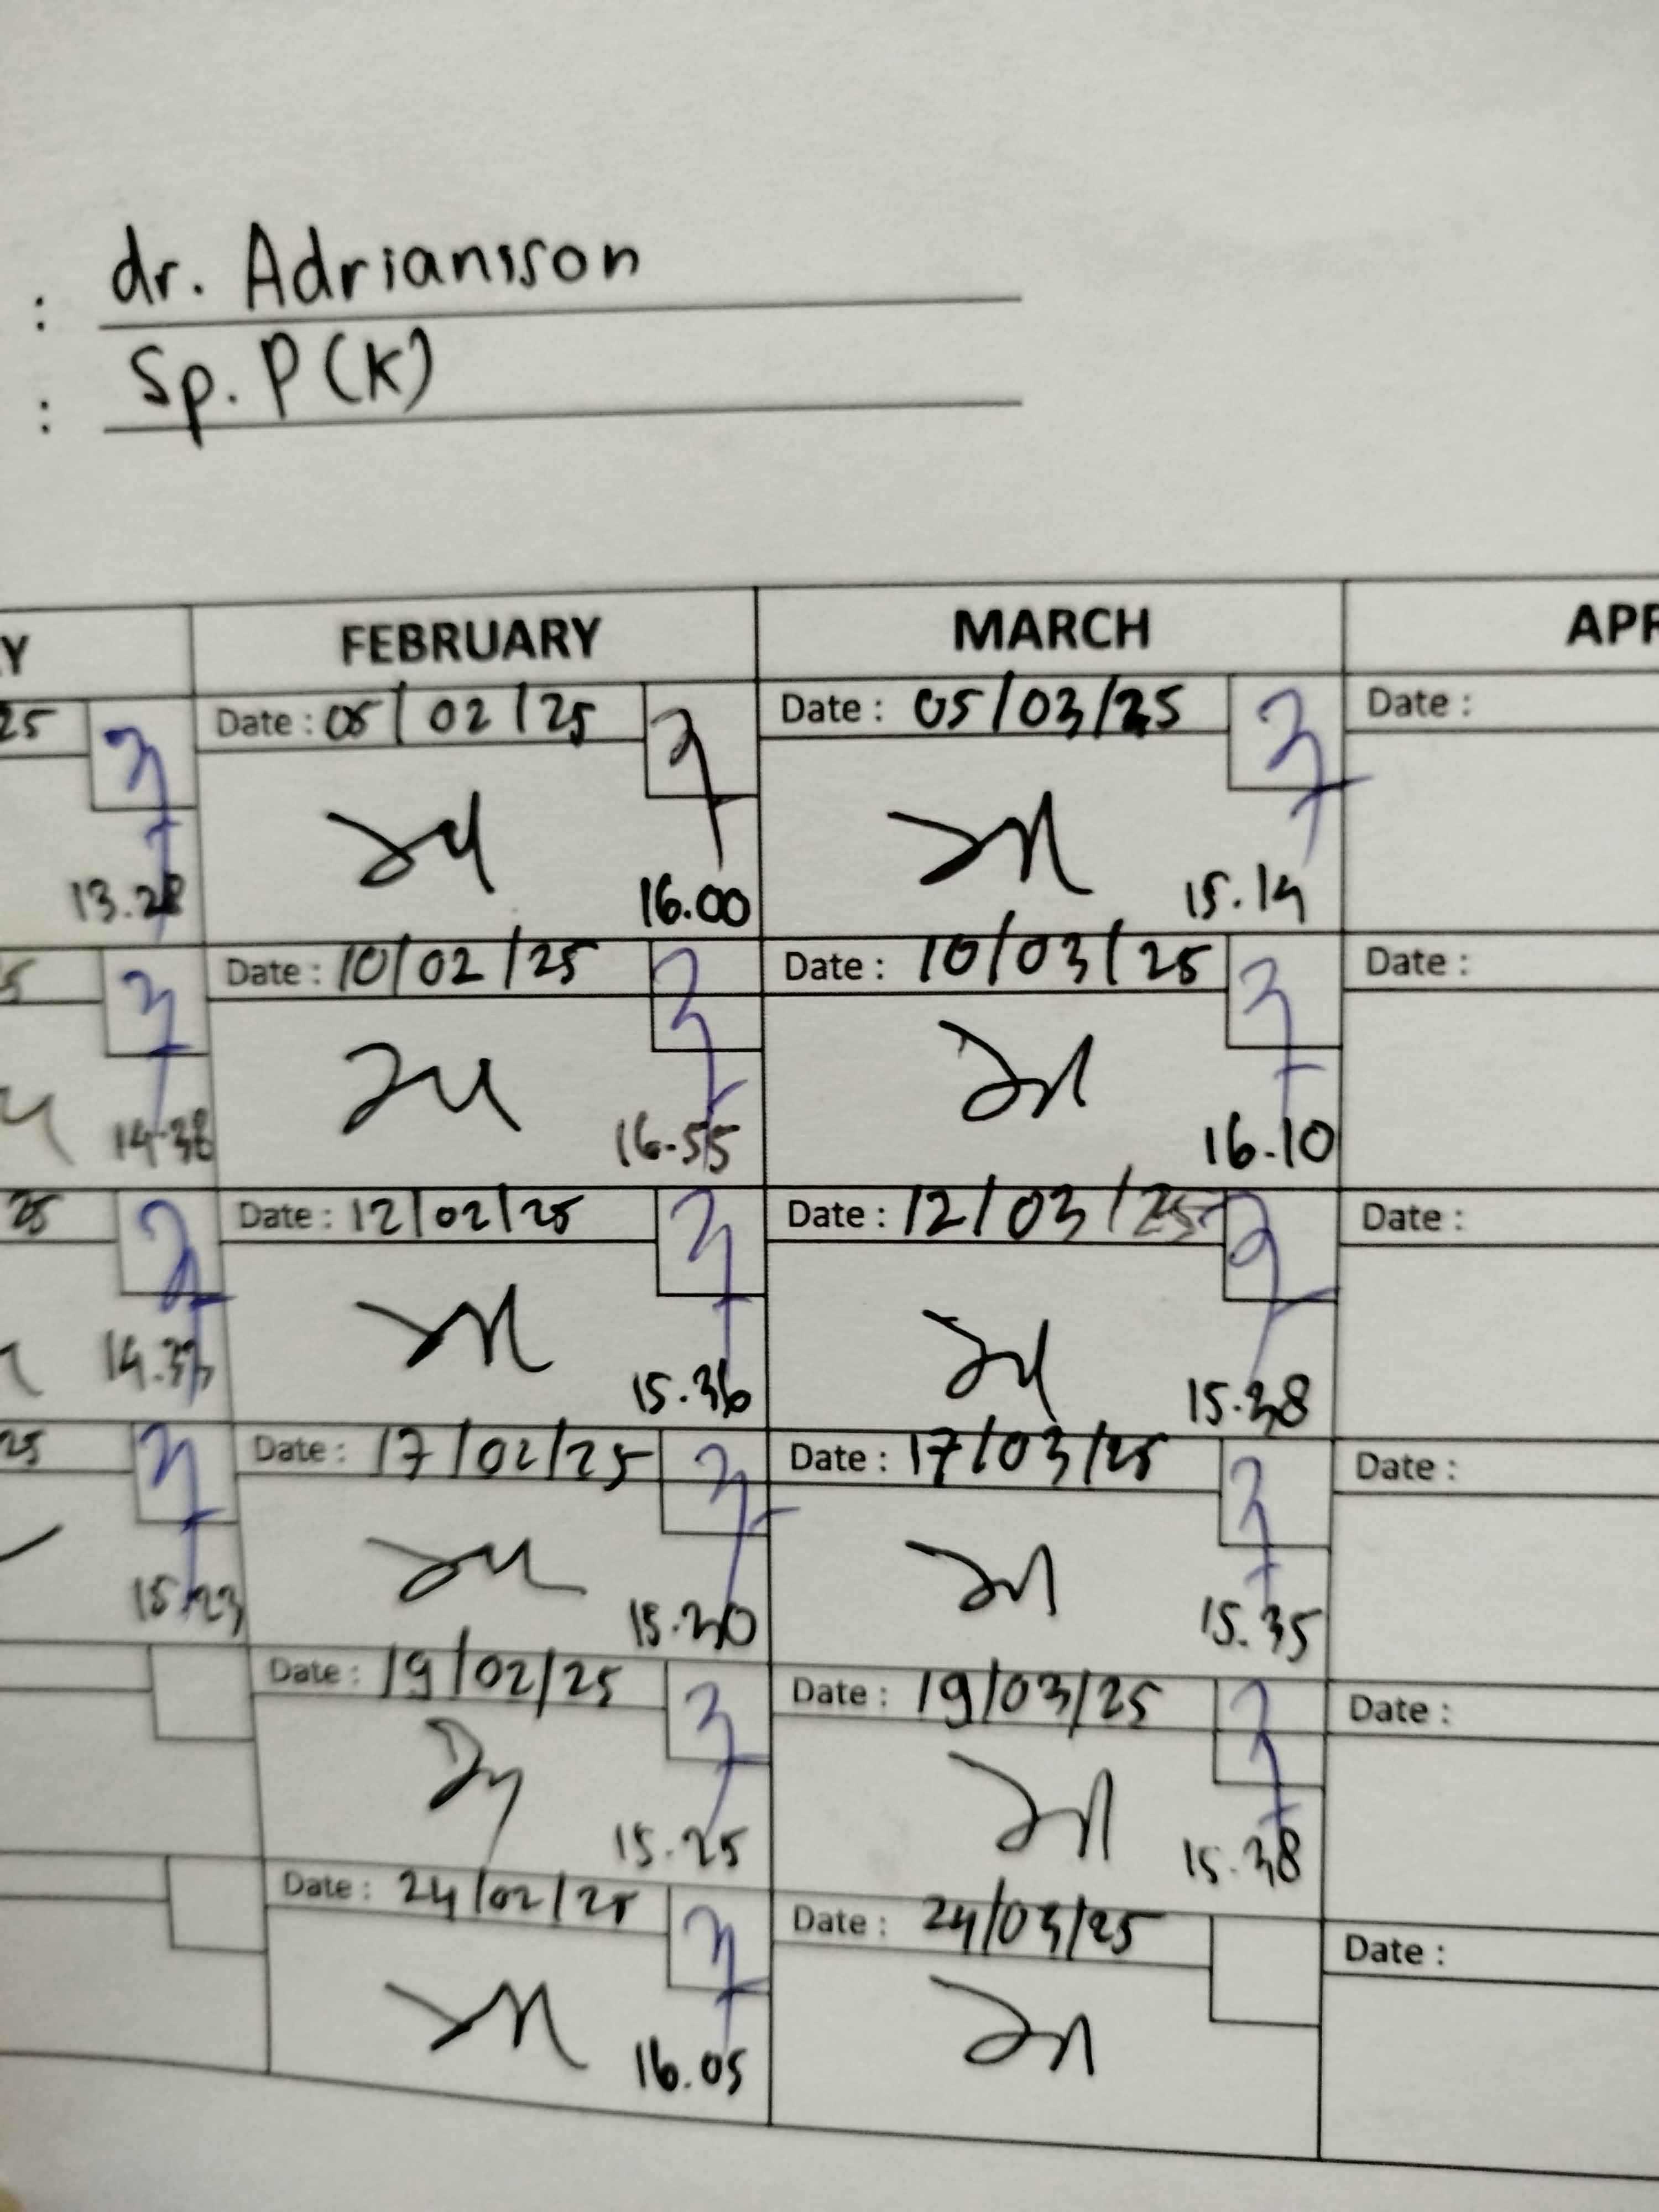 : dr. Adrianison
: Sp. P (K)
Y FEBRUARY MARCH APR
25 Date : 05/02/25 Date : 05/03/25 Date :
13.28 16.00 15.14
5 Date : 10/02/25 Date : 10/03/25 Date :
14.38 16.55 16.10
25 Date : 12/02/25 Date : 12/03/25 Date :
15.36 15.38
25 Date : 17/02/25 Date : 17/03/25 Date :
15.23 15.30 15.35
Date : 19/02/25 Date : 19/03/25 Date :
15.25 15.38
Date : 24/02/25 Date : 24/03/25 Date :
16.05